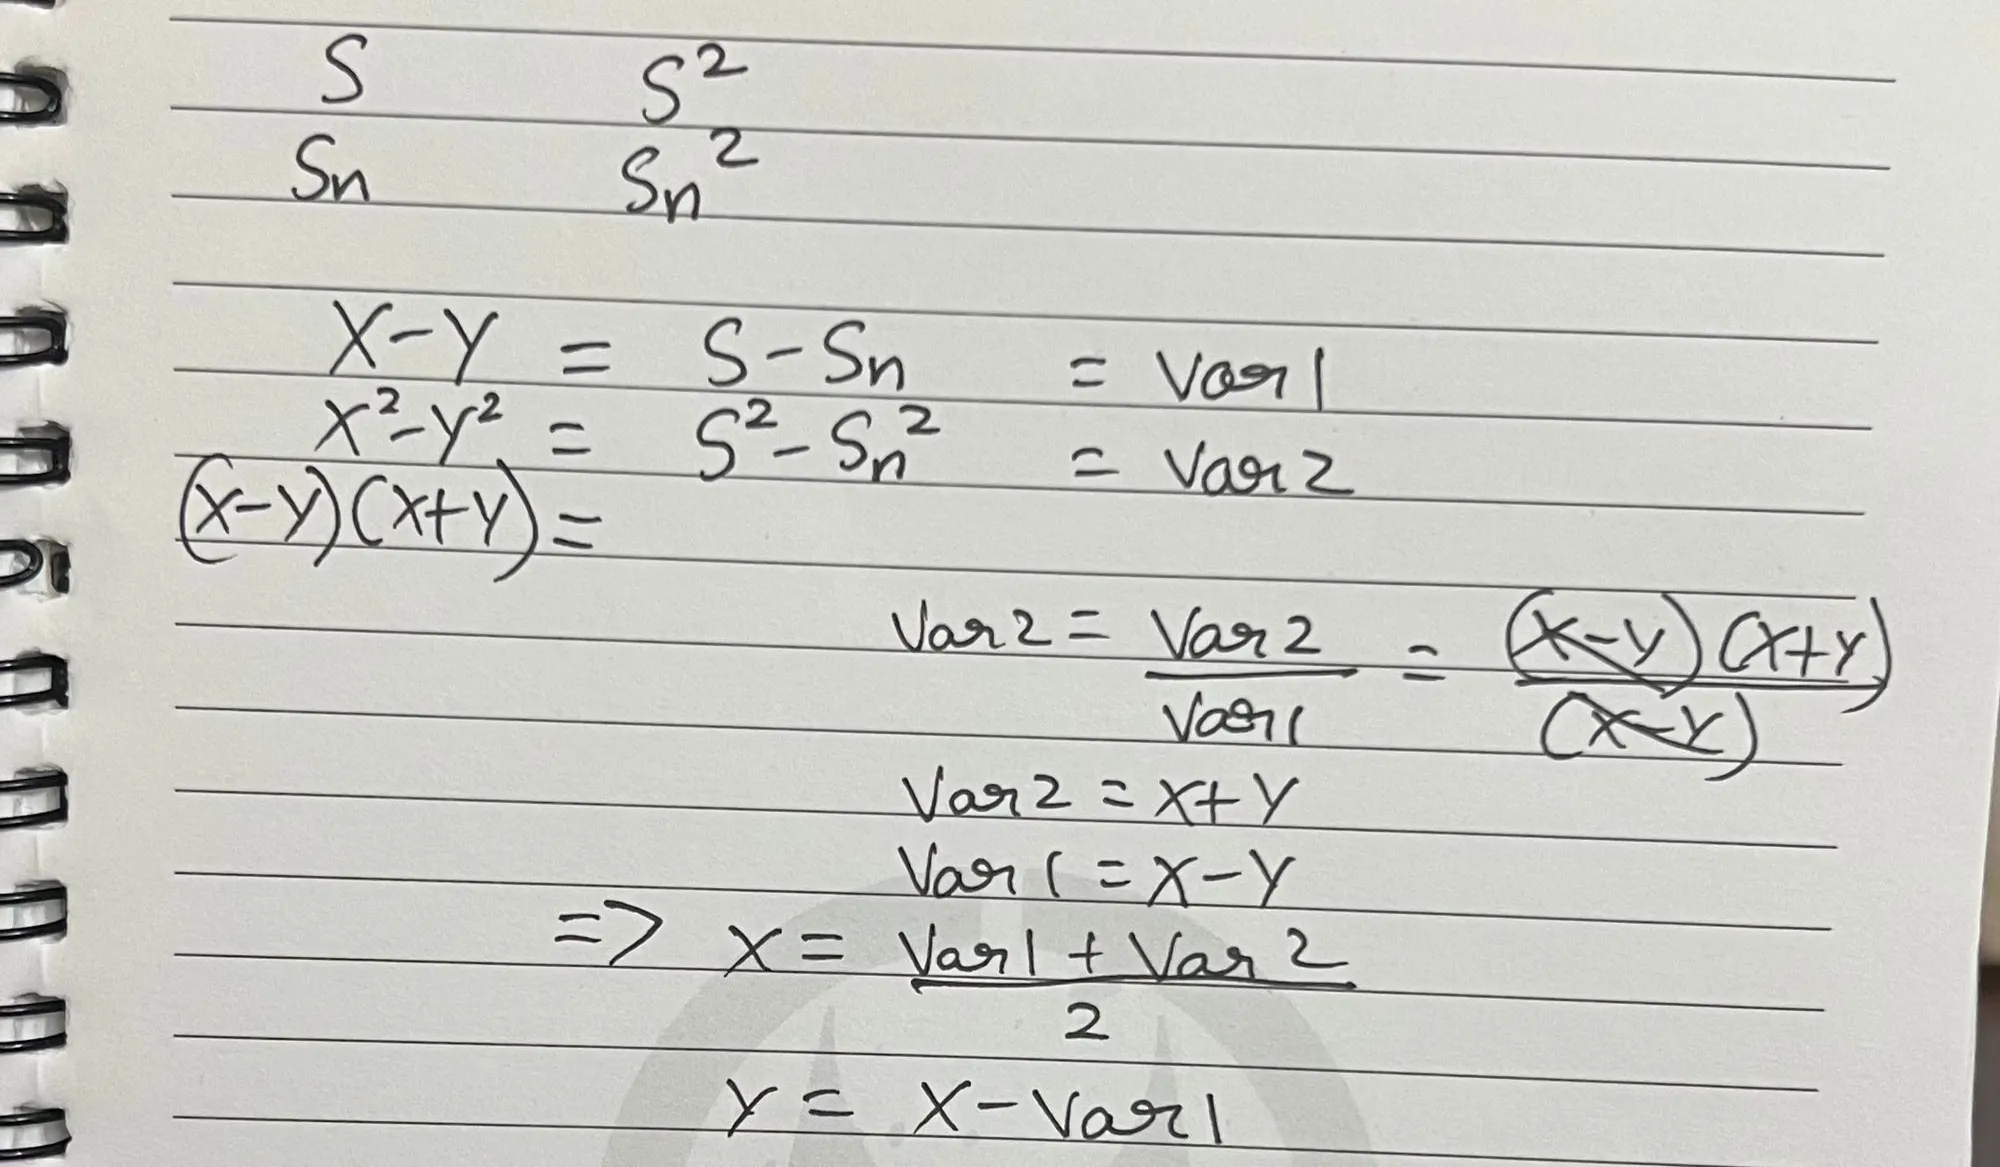 S S²
Sn Sn²
X-Y = S-Sn = Var1
X²-Y² = S²-Sn² = Var2
(X-Y)(X+Y) =
Var2 = Var2/Var1 = (X-Y)(X+Y)/(X-Y)
Var2 = X+Y
Var1 = X-Y
=> X = Var1 + Var2/2
Y = X-Var1